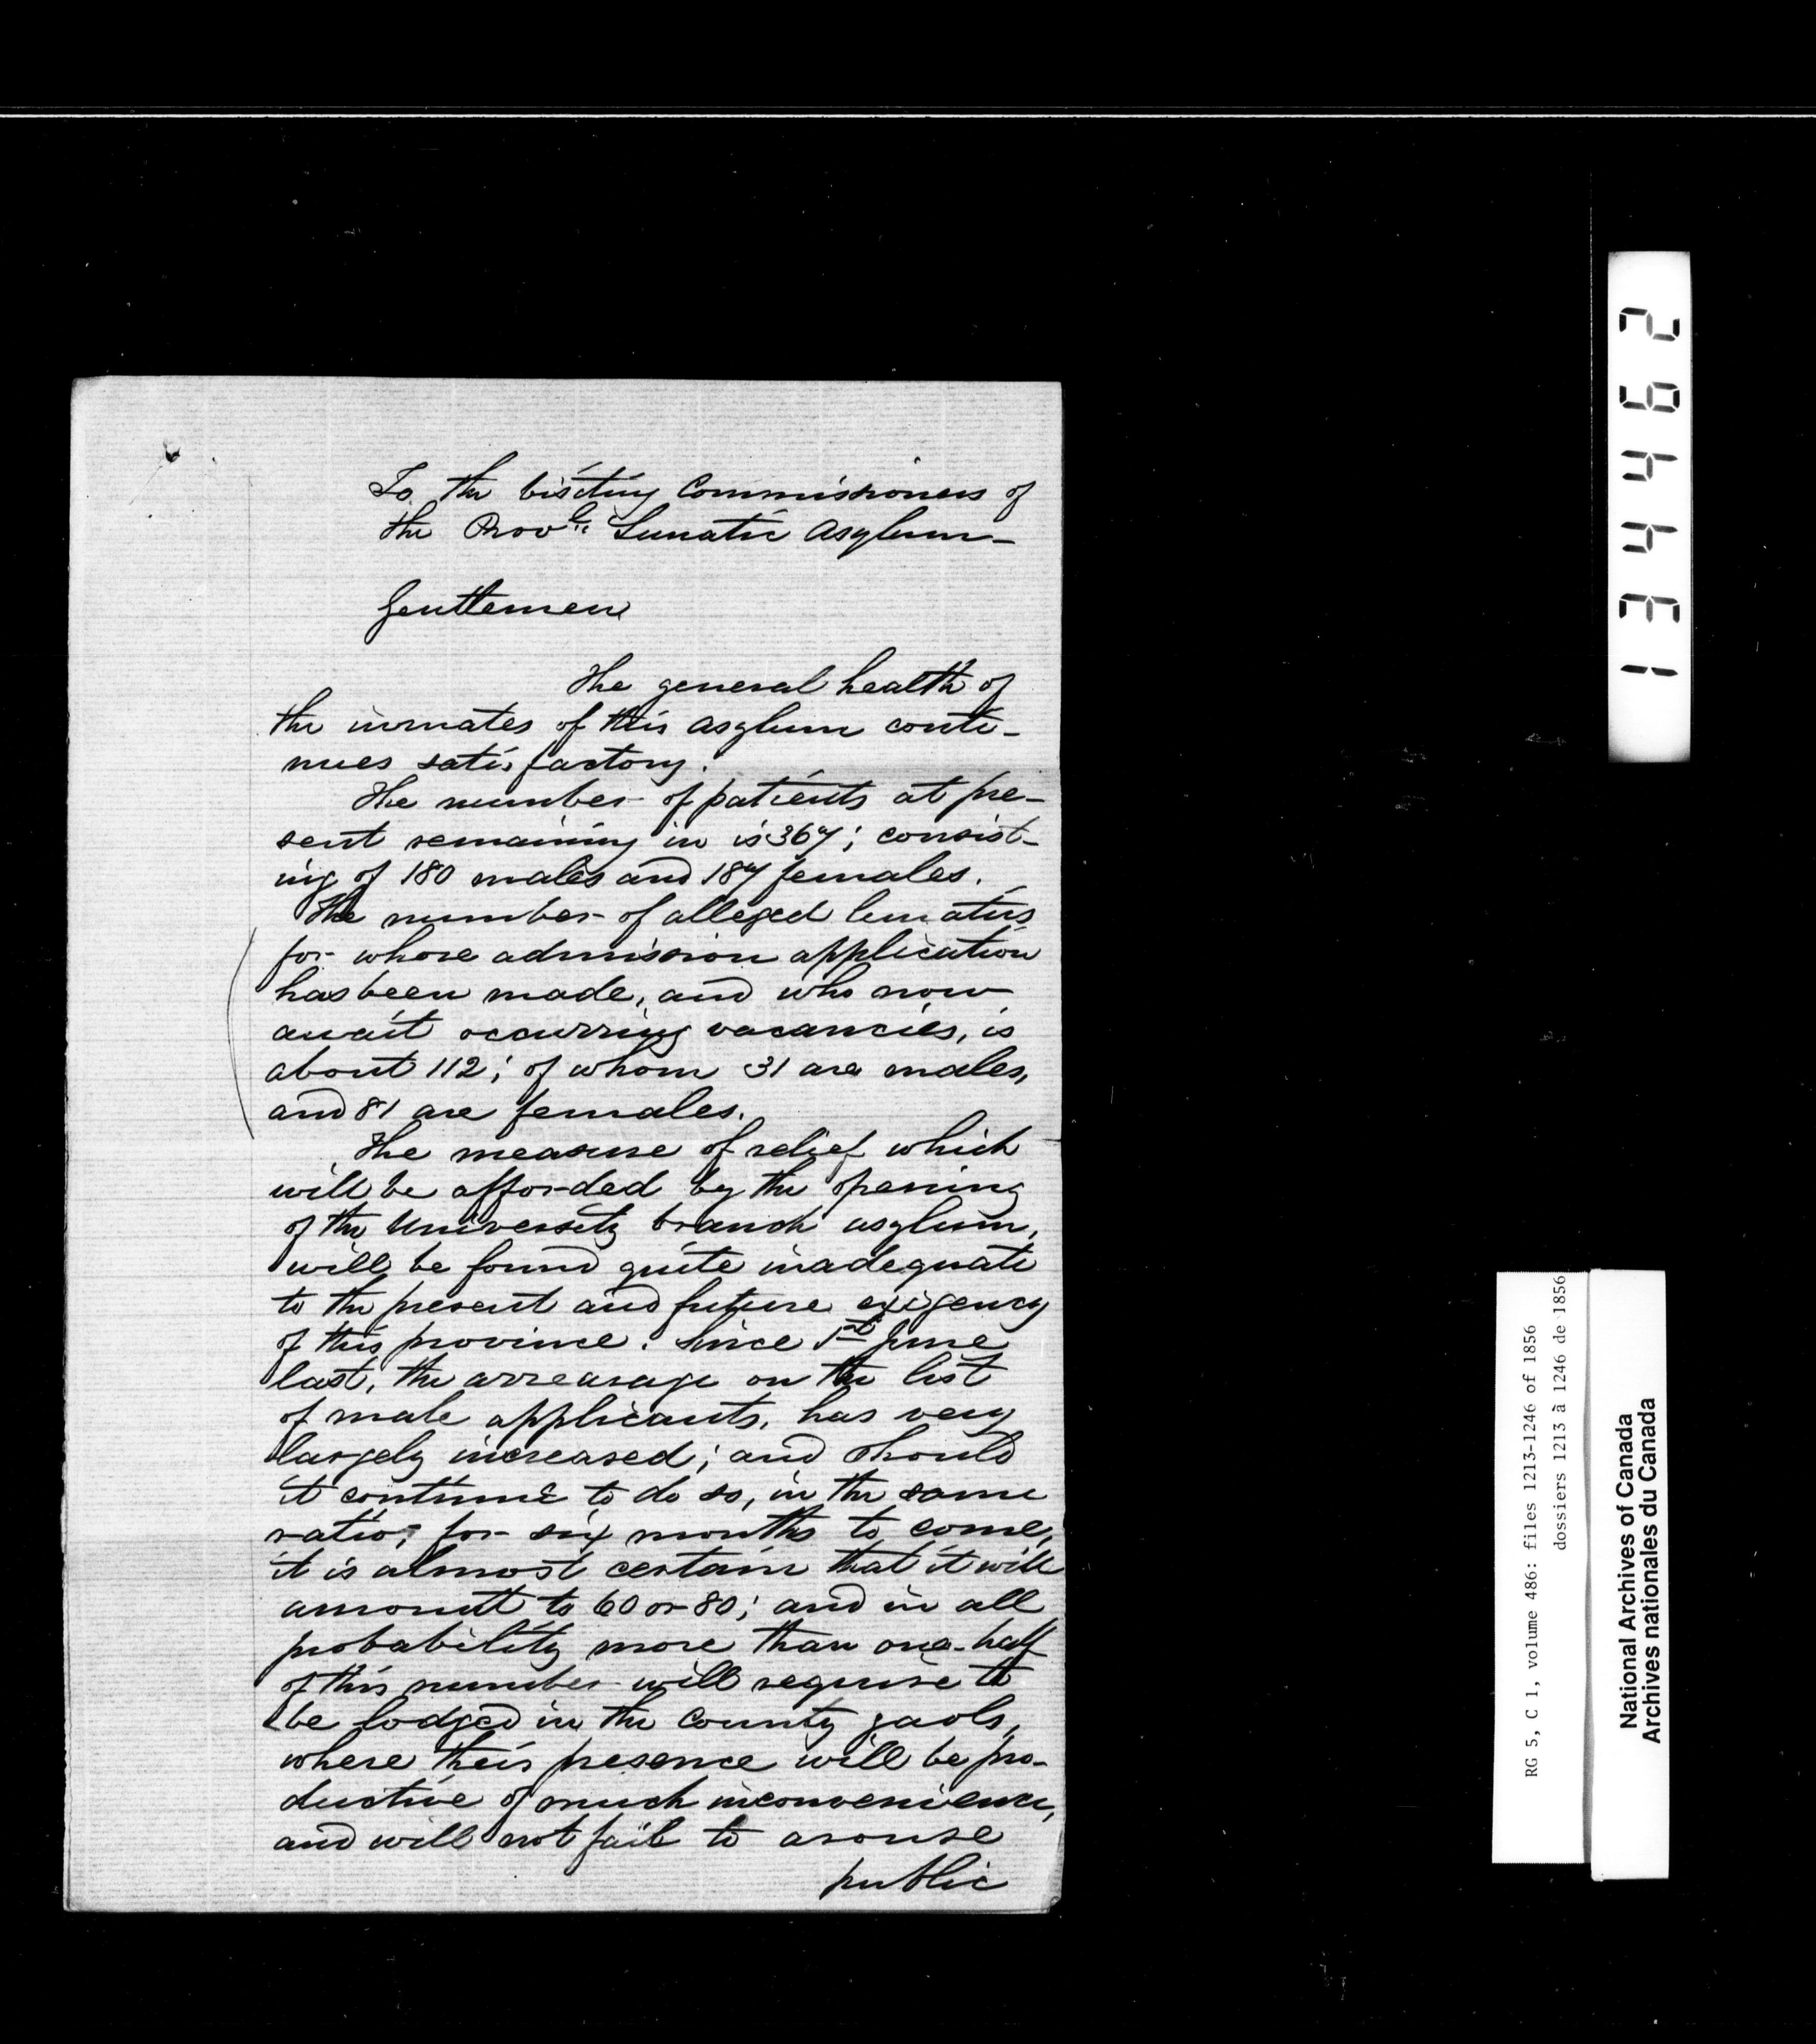 To the Visiting Commissioners of
the Prov.l Lunatic Asylum-
Gentlemen
The general health of
the inmates of this asylum conti-
nues satisfactory.
The number of patients at pre-
sent remaining in is 367; consist-
ing of 180 males and 187 females.
The number of alleged lunatics
for whose admission application
has been made, and who now
await occurring vacancies, is
about 112; of whom 31 are males,
and 81 are females.
The measure of relief which
will be afforded by the opening
of the University branch asylum,
will be found quite inadequate
to the present and future exigency
of this province. Since 1st June
last, the arrearage on the list
of male applicants, has very
largely increased; and should
it continue to do so, in the same
ratio, for six months to come,
it is almost certain that it will
amount to 60 or 80; and in all
probability more than one-half
of this number will require to
be lodged in the county gaols,
where their presence will be pro-
ductive of much inconvenience,
and will not fail to arouse
public
134462
RG 5, C 1, volume 486: files 1213-1246 of 1856
dossiers 1213 à 1246 de 1856
National Archives of Canada
Archives nationales du Canada